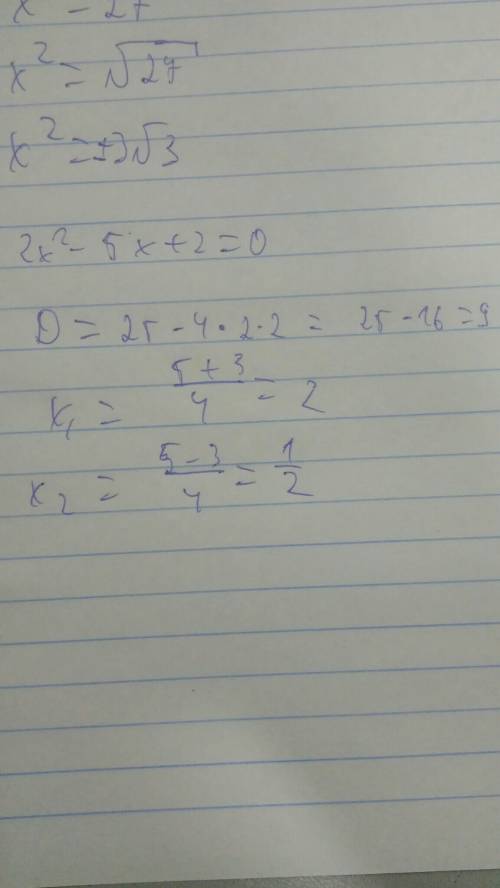 x² = √27
x² = ±3√3
2x² - 5x + 2 = 0
D = 25 - 4 · 2 · 2 = 25 - 16 = 9
x₁ = (5 + 3)/4 = 2
x₂ = (5 - 3)/4 = 1/2